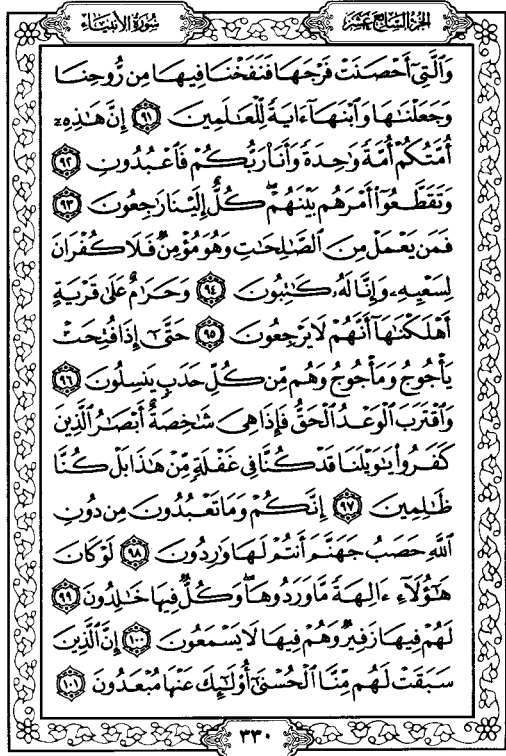 الجزء السابع عشر
سورة الأنبياء
وَٱلَّتِىٓ أَحۡصَنَتۡ فَرۡجَهَا فَنَفَخۡنَا فِيهَا مِن رُّوحِنَا
وَجَعَلۡنَٰهَا وَٱبۡنَهَآ ءَايَةٗ لِّلۡعَٰلَمِينَ ٩١ إِنَّ هَٰذِهِۦٓ
أُمَّتُكُمۡ أُمَّةٗ وَٰحِدَةٗ وَأَنَا۠ رَبُّكُمۡ فَٱعۡبُدُونِ ٩٢
وَتَقَطَّعُوٓاْ أَمۡرَهُم بَيۡنَهُمۡۖ كُلٌّ إِلَيۡنَا رَٰجِعُونَ ٩٣
فَمَن يَعۡمَلۡ مِنَ ٱلصَّٰلِحَٰتِ وَهُوَ مُؤۡمِنٞ فَلَا كُفۡرَانَ
لِسَعۡيِهِۦ وَإِنَّا لَهُۥ كَٰتِبُونَ ٩٤ وَحَرَٰمٌ عَلَىٰ قَرۡيَةٍ
أَهۡلَكۡنَٰهَآ أَنَّهُمۡ لَا يَرۡجِعُونَ ٩٥ حَتَّىٰٓ إِذَا فُتِحَتۡ
يَأۡجُوجُ وَمَأۡجُوجُ وَهُم مِّن كُلِّ حَدَبٖ يَنسِلُونَ ٩٦
وَٱقۡتَرَبَ ٱلۡوَعۡدُ ٱلۡحَقُّ فَإِذَا هِىَ شَٰخِصَةٌ أَبۡصَٰرُ ٱلَّذِينَ
كَفَرُواْ يَٰوَيۡلَنَا قَدۡ كُنَّا فِى غَفۡلَةٖ مِّنۡ هَٰذَا بَلۡ كُنَّا
ظَٰلِمِينَ ٩٧ إِنَّكُمۡ وَمَا تَعۡبُدُونَ مِن دُونِ
ٱللَّهِ حَصَبُ جَهَنَّمَ أَنتُمۡ لَهَا وَٰرِدُونَ ٩٨ لَوۡ كَانَ
هَٰٓؤُلَآءِ ءَالِهَةٗ مَّا وَرَدُوهَاۖ وَكُلٌّ فِيهَا خَٰلِدُونَ ٩٩
لَهُمۡ فِيهَا زَفِيرٞ وَهُمۡ فِيهَا لَا يَسۡمَعُونَ ١٠٠ إِنَّ ٱلَّذِينَ
سَبَقَتۡ لَهُم مِّنَّا ٱلۡحُسۡنَىٰٓ أُوْلَٰٓئِكَ عَنۡهَا مُبۡعَدُونَ ١٠١
٣٣٠